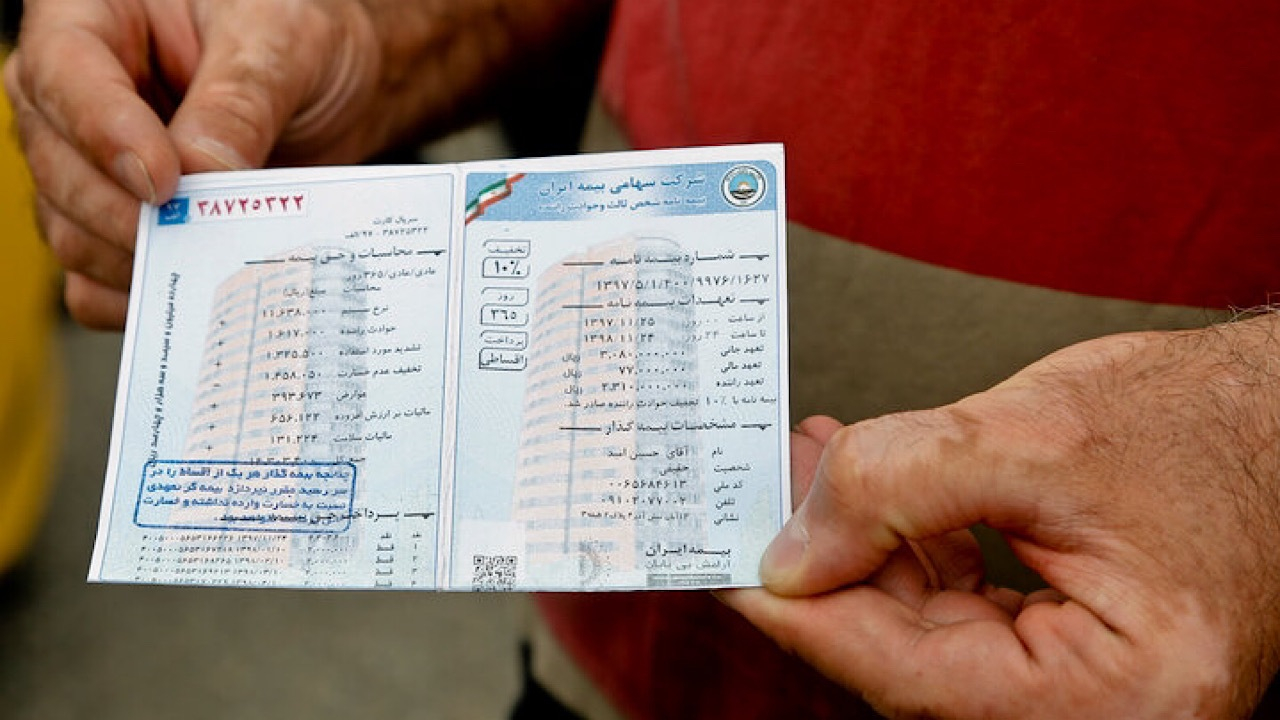 شرکت سهامی بیمه ایران
بیمه نامه شخص ثالث و حوادث راننده
شماره بیمه نامه
۱۳۹۷/۵/۱/۲۰۰/۹۹۷۶/۱۶۲۷
تخفیف
۱۰%
روز
۳۶۵
پرداخت
اقساطی
تعهدات بیمه نامه
از ساعت ۰۰ روز ۱۳۹۷/۱۱/۲۵
تا ساعت ۲۴ روز ۱۳۹۸/۱۱/۲۴
تعهد جانی ۳,۰۸۰,۰۰۰,۰۰۰ ریال
تعهد مالی ۷۷,۰۰۰,۰۰۰ ریال
تعهد راننده ۲,۳۱۰,۰۰۰,۰۰۰ ریال
بیمه نامه با ۱۰% تخفیف حوادث راننده صادر شد.
مشخصات بیمه گذار
نام آقای حسین اسد
شخصیت حقیقی
کد ملی ۰۰۶۵۶۸۴۶۱۳
تلفن ۰۹۱۰۲۰۷۷۰۰۲
نشانی
بیمه ایران
آرامش بی پایان
۳۸۷۲۵۳۲۲
۹۷
الف
سریال کارت
۳۸۷۲۵۳۲۲ - ۹۷/الف
محاسبات و حق بیمه
عادی/عادی/۳۶۵ روز
محاسبات مبلغ(ریال)
نرخ سیستم ۱۱,۶۳۸,۰۰۰ +
حوادث راننده ۱,۶۱۷,۰۰۰ +
تشدید مورد استفاده ۱,۳۲۵,۵۰۰ +
تخفیف عدم خسارت ۱,۴۵۸,۰۵۰ -
عوارض ۳۹۳,۶۷۳ +
مالیات بر ارزش افزوده ۶۵۶,۱۲۲ +
مالیات سلامت ۱۳۱,۲۲۴ +
چنانچه بیمه گذار هر یک از اقساط را در
سر رسید مقرر نپردازد بیمه گر تعهدی
نسبت به خسارت وارده نداشته و خسارت
نقد
قسط
قسط
قسط